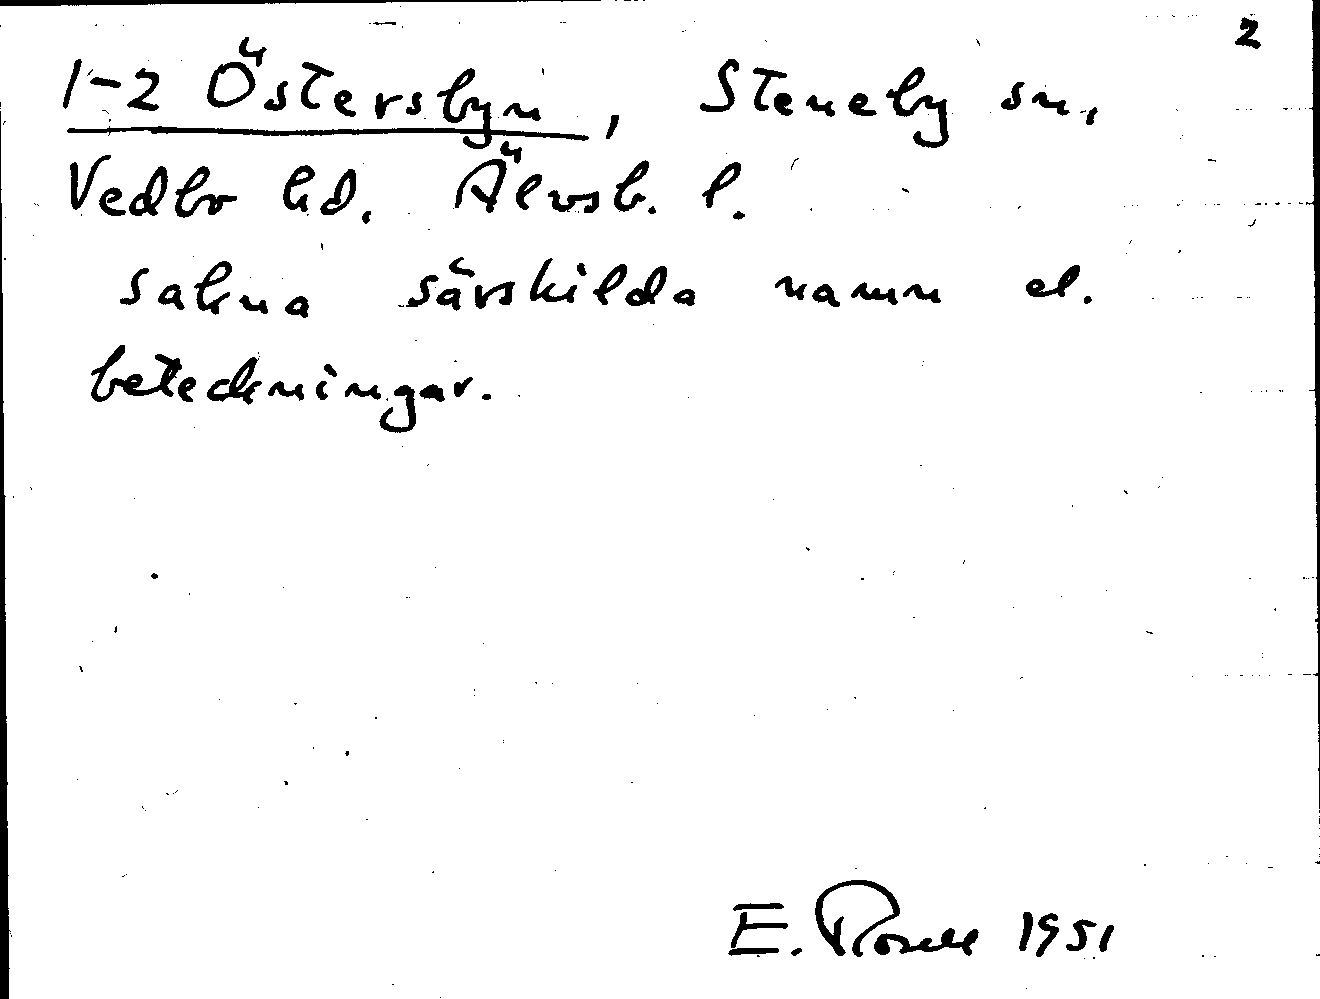 2
1-2 Östersbyn, Steneby sn,
Vedbo hd. Älvsb. l.
sakna särskilda namn el.
beteckningar.
E. Rosell 1951